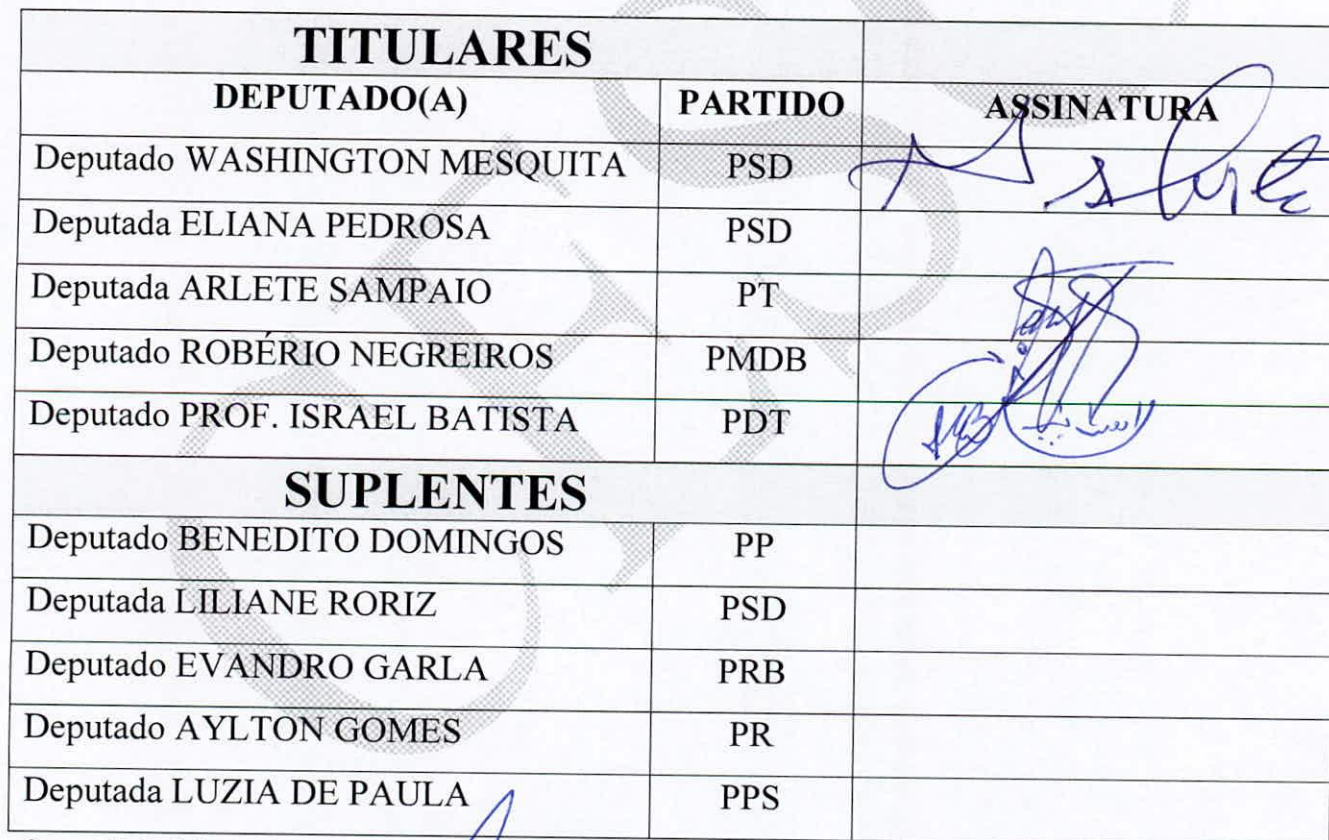 TITULARES
DEPUTADO(A) PARTIDO ASSINATURA
Deputado WASHINGTON MESQUITA PSD
Deputada ELIANA PEDROSA PSD
Deputada ARLETE SAMPAIO PT
Deputado ROBÉRIO NEGREIROS PMDB
Deputado PROF. ISRAEL BATISTA PDT
SUPLENTES
Deputado BENEDITO DOMINGOS PP
Deputada LILIANE RORIZ PSD
Deputado EVANDRO GARLA PRB
Deputado AYLTON GOMES PR
Deputada LUZIA DE PAULA PPS